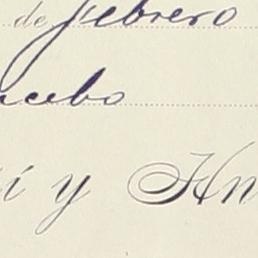 de febrero
cebo
í y Hn